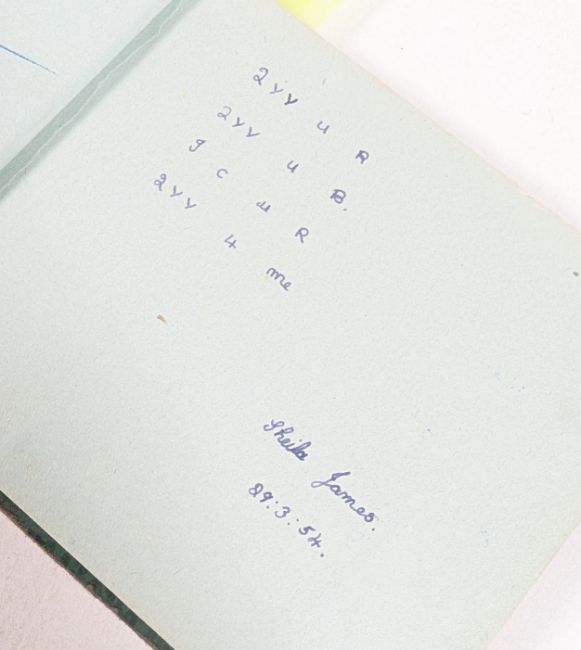 2 Y Y U R
2 Y Y U B.
I C U R
2 Y Y 4 me
Sheila James.
29:3:54.